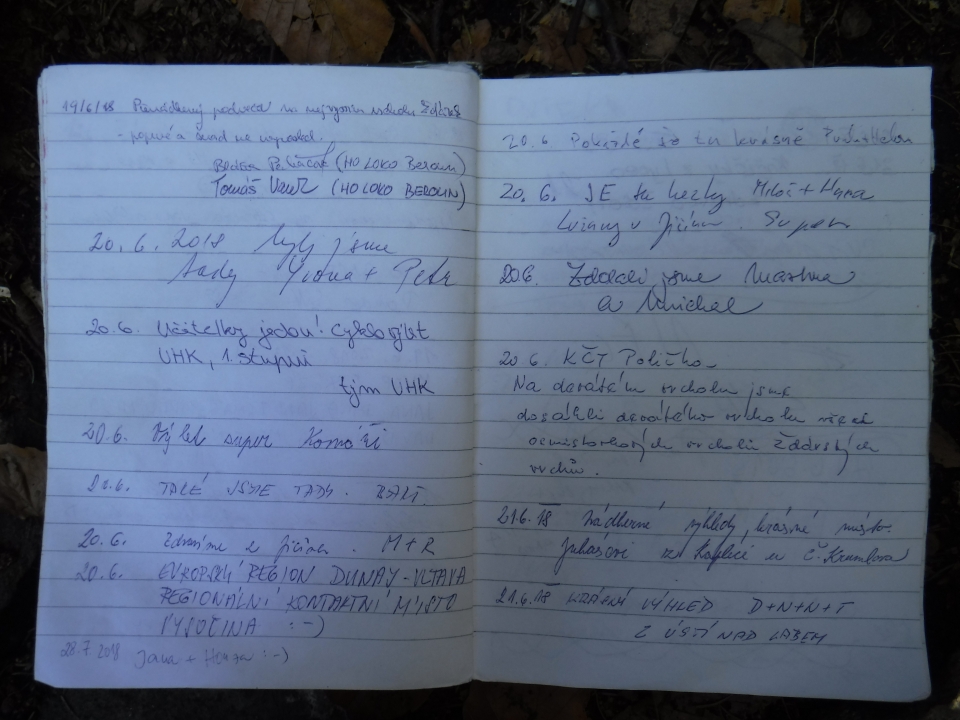 19/6/18 podvečer na
- a na
(HOLOKO BEROUN)
Tomáš (HOLOKO BEROUN)
20. 6. 2018 byli jsme
tady Yvona + Petr
20. 6. Učitelky jedou! Cyklovýlet
UHK, 1. stupeň
tým UHK
20.6. Výlet super Komáři
20.6. TAKÉ JSME TADY.
20.6. Zdravíme z Jičína. M+R
20.6. EVROPSKÝ REGION DUNAJ-VLTAVA
REGIONÁLNÍ KONTAKTNÍ MÍSTO
VYSOČINA :-)
28.7 2018 Jana + Honza :-)
20.6 Pokaždé je tu krásně
20. 6. JE tu hezky Miloš + Hana
z Jičína. Super
20.6. jsme Martina
a Michal
20 6. KČT Polička
Na devátém vrcholu jsme
dosáhli devátého vrcholu všech
osmistovkových vrcholů Žďárských
vrchů.
21.6.18 Nádherné výhledy krásné místo.
Juhászovi ze Kaplice u Č. Krumlova
21.6.18 KRÁSNÝ VÝHLED D+N+N+T
Z ÚSTÍ NAD LABEM